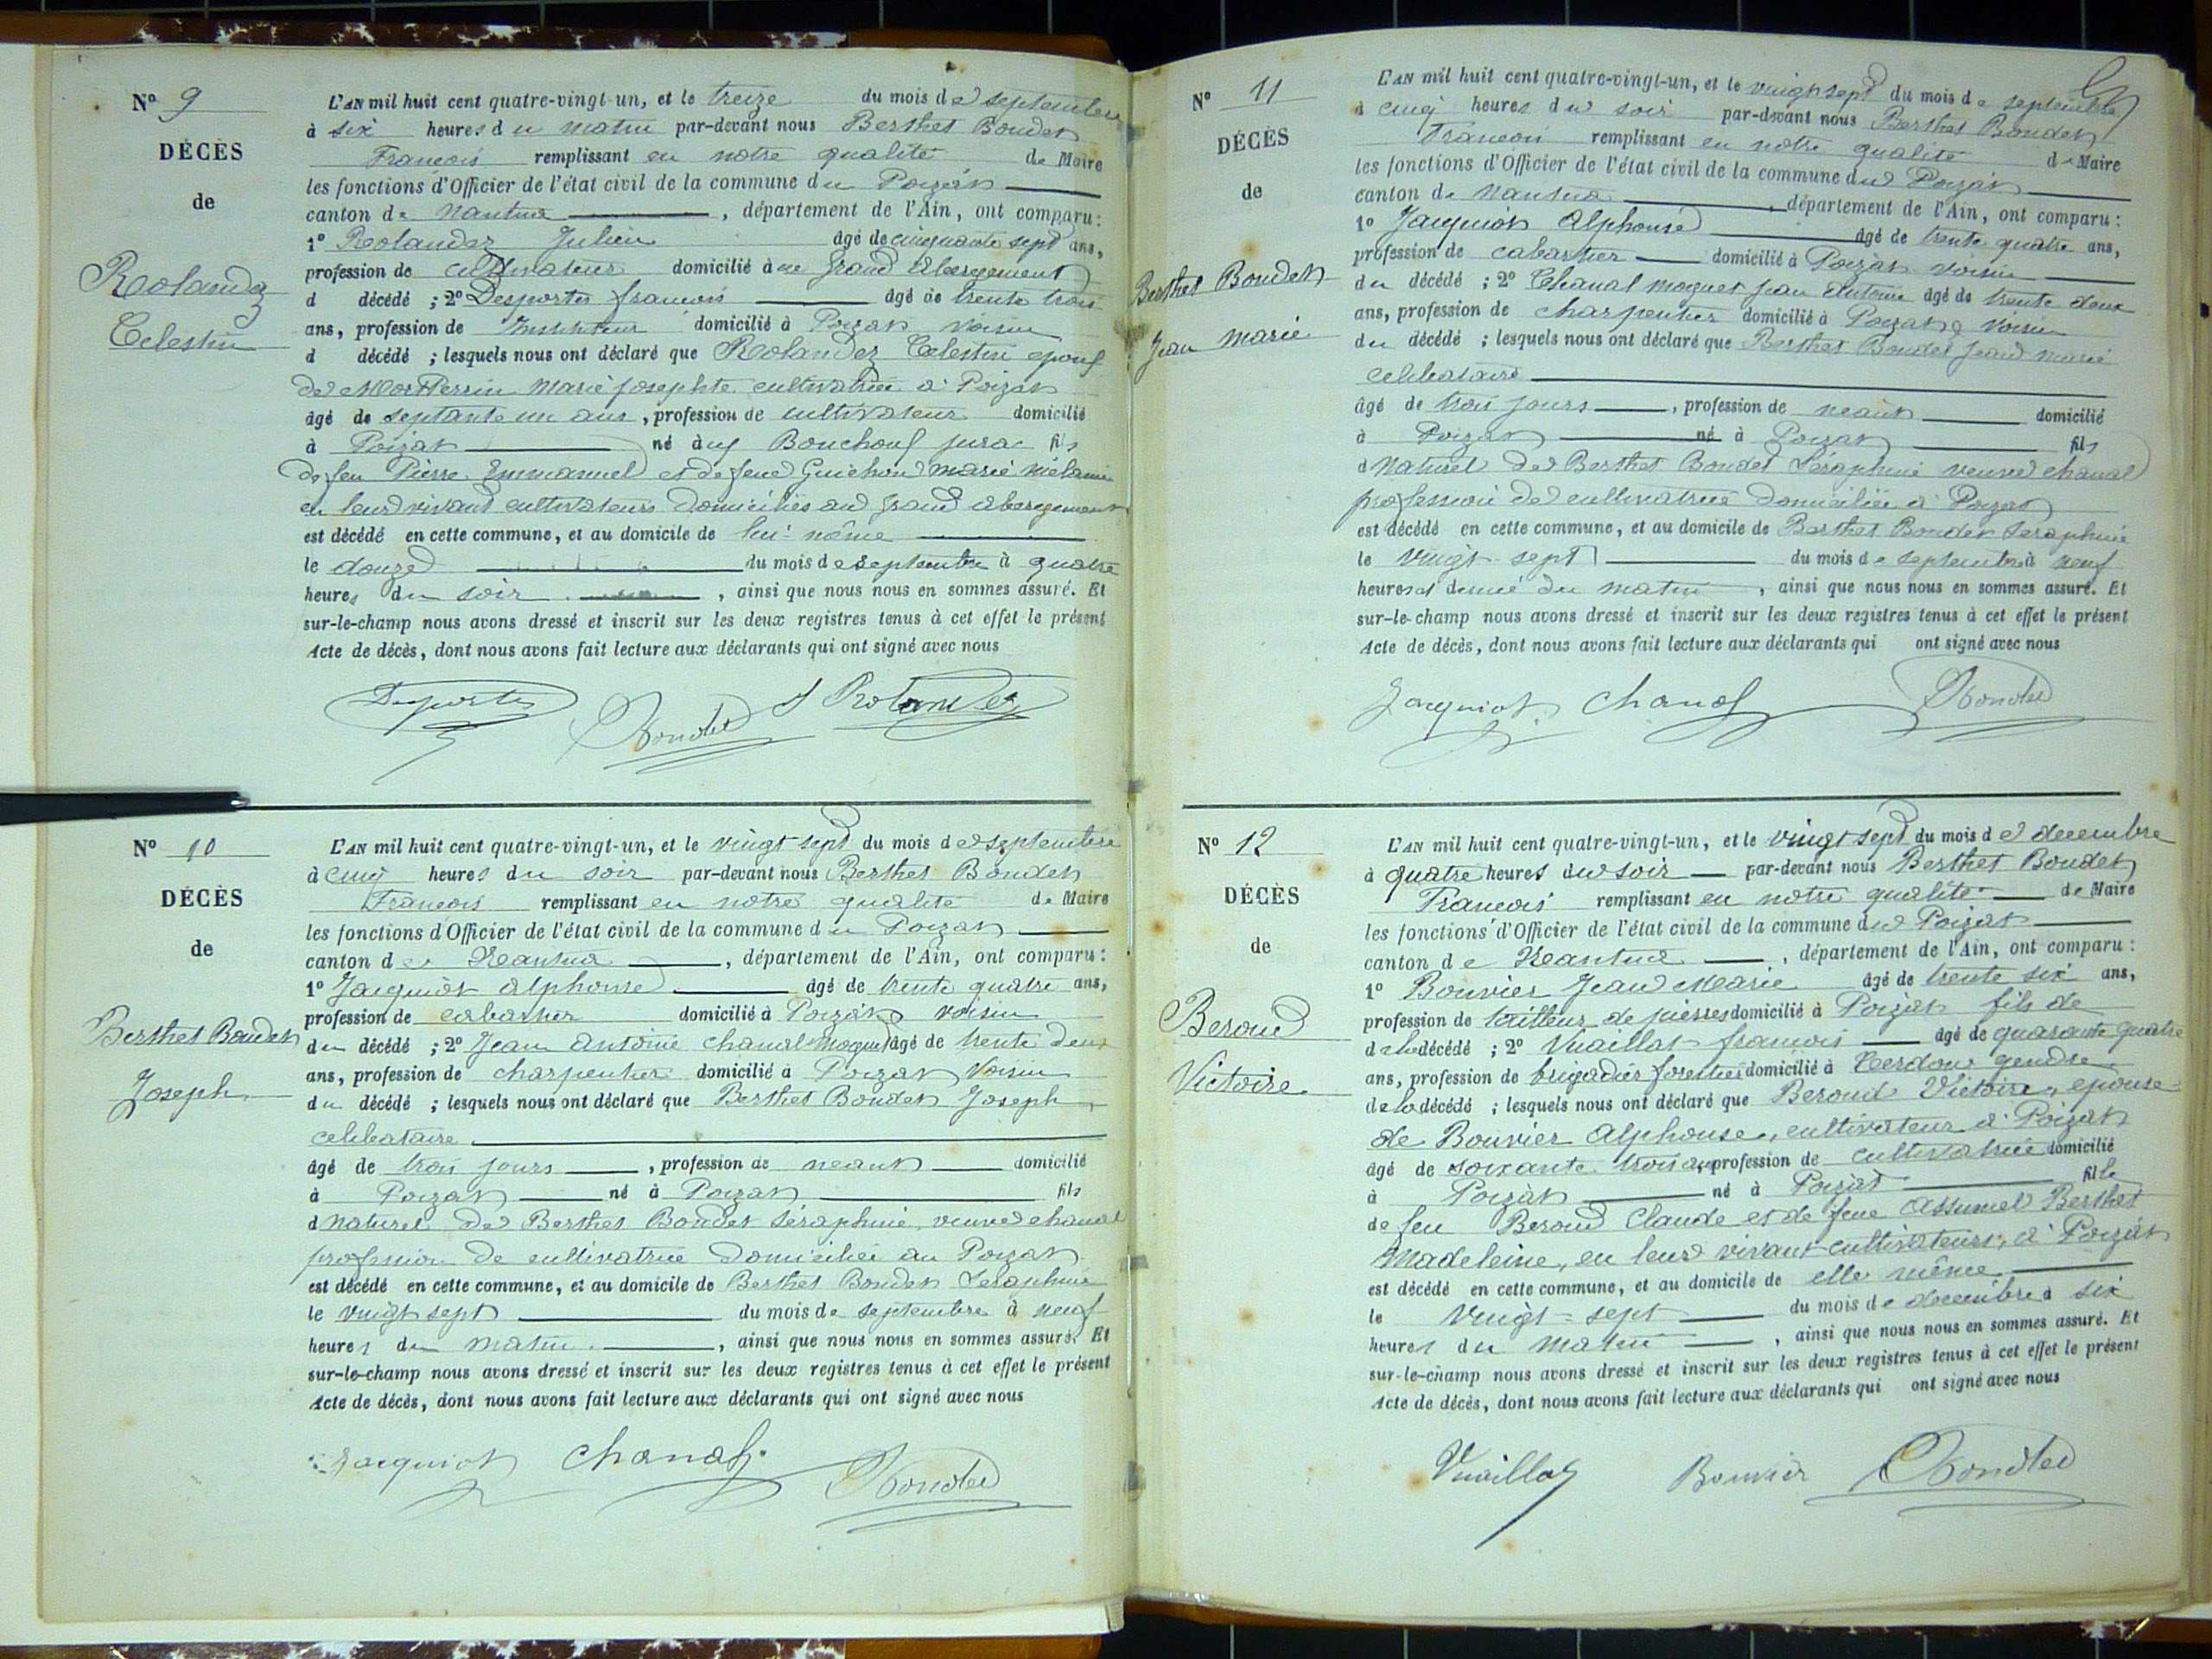 N° 9
DÉCÈS
de
Rolandez
Celestin
L'AN mil huit cent quatre-vingt-un, et le treize du mois de septembre
à six heures du matin par-devant nous Berthet Bondet
François remplissant en notre qualité de Maire
les fonctions d'Officier de l'état civil de la commune du Poizat
canton de Nantua, département de l'Ain, ont comparu :
1° Rolandez Julien âgé de cinquante sept ans,
profession de cultivateur domicilié à au grand Abergement
d décédé ; 2° Desportes françois âgé de trente trois
ans, profession de Instituteur domicilié à Poizat voisin
d décédé ; lesquels nous ont déclaré que Rolandez Celestin epoux
de Marie josephte cultivatrice à Poizat
âgé de septante un ans, profession de cultivateur domicilié
à Poizat né à Bouchoux jura fils
de feu Pierre Emmanuel et de feue Guichon marie mélanie
en leur vivant cultivateurs domiciliés au grand abergement
est décédé en cette commune, et au domicile de lui-même
le douze du mois de septembre à quatre
heures du soir, ainsi que nous nous en sommes assuré. Et
sur-le-champ nous avons dressé et inscrit sur les deux registres tenus à cet effet le présent
Acte de décès, dont nous avons fait lecture aux déclarants qui ont signé avec nous
Desportes Bondet J Rolandez
N° 10
DÉCÈS
de
Berthet Bondet
Joseph
L'AN mil huit cent quatre-vingt-un, et le vingt sept du mois de septembre
à cinq heures du soir par-devant nous Berthet Bondet
François remplissant en notre qualité de Maire
les fonctions d'Officier de l'état civil de la commune du Poizat
canton de Nantua, département de l'Ain, ont comparu :
1° Jacquiot alphonse âgé de trente quatre ans,
profession de cabartier domicilié à Poizat voisin
du décédé ; 2° Jean Antoine chanal moguet âgé de trente deux
ans, profession de charpentier domicilié à Poizat voisin
du décédé ; lesquels nous ont déclaré que Berthet Bondet Joseph
celibataire
âgé de trois jours, profession de neant domicilié
à Poizat né à Poizat fils
d naturel de Berthet Bondet Séraphine veuve chanal
profession de cultivatrice domiciliée au Poizat
est décédé en cette commune, et au domicile de Berthet Bondet Seraphine
le vingt sept du mois de septembre à neuf
heures du matin, ainsi que nous nous en sommes assuré. Et
sur-le-champ nous avons dressé et inscrit sur les deux registres tenus à cet effet le présent
Acte de décès, dont nous avons fait lecture aux déclarants qui ont signé avec nous
Jacquiot Chanal Bondet
N° 11
DÉCÈS
de
Berthet Bondet
Jean Marie
L'AN mil huit cent quatre-vingt-un, et le vingt sept du mois de septembre
à cinq heures du soir par-devant nous Berthet Bondet
François remplissant en notre qualité de Maire
les fonctions d'Officier de l'état civil de la commune du Poizat
canton de Nantua, département de l'Ain, ont comparu :
1° Jacquiot Alphonse âgé de trente quatre ans,
profession de cabartier domicilié à Poizat voisin
du décédé ; 2° Chanal moguet jean Antoine âgé de trente deux
ans, profession de charpentier domicilié à Poizat voisin
du décédé ; lesquels nous ont déclaré que Berthet Bondet jean marie
celibataire
âgé de trois jours, profession de neant domicilié
à Poizat né à Poizat fils
d naturel de Berthet Bondet Séraphine veuve chanal
profession de cultivatrice domiciliée à Poizat
est décédé en cette commune, et au domicile de Berthet Bondet Seraphine
le vingt sept du mois de septembre à neuf
heures et demie du matin, ainsi que nous nous en sommes assuré. Et
sur-le-champ nous avons dressé et inscrit sur les deux registres tenus à cet effet le présent
Acte de décès, dont nous avons fait lecture aux déclarants qui ont signé avec nous
Jacquiot Chanal Bondet
N° 12
DÉCÈS
de
Beroud
Victoire
L'AN mil huit cent quatre-vingt-un, et le vingt sept du mois de decembre
à quatre heures du soir par-devant nous Berthet Bondet
François remplissant en notre qualité de Maire
les fonctions d'Officier de l'état civil de la commune du Poizat
canton de Nantua, département de l'Ain, ont comparu :
1° Bouvier Jean Marie âgé de trente six ans,
profession de tailleur de pierres domicilié à Poizat fils de
de la décédé ; 2° Vuaillat françois âgé de quarante quatre
ans, profession de brigadier forestier domicilié à Cerdon gendre
de la décédé ; lesquels nous ont déclaré que Beroud Victoire, epouse
de Bouvier Alphonse, cultivateur à Poizat
âgé de soixante trois ans, profession de cultivatrice domicilié
à Poizat né à Poizat fille
de feu Beroud Claude et de feue Assumel Berthet
Madeleine, en leur vivant cultivateurs, à Poizat
est décédé en cette commune, et au domicile de elle même
le vingt-sept du mois de decembre à six
heures du matin, ainsi que nous nous en sommes assuré. Et
sur-le-champ nous avons dressé et inscrit sur les deux registres tenus à cet effet le présent
Acte de décès, dont nous avons fait lecture aux déclarants qui ont signé avec nous
Vuaillat Bouvier Bondet